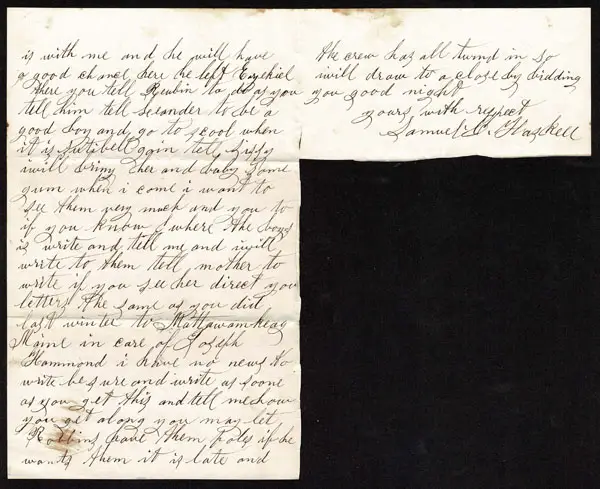 is with me and he will have
a good chanc here he left Ezekiel
there you tell Reubin to do as you
tell him tell Leander to be a
good boy and go to scool when
it is sutibell again tell Lizzy
i will bring her and baby some
gum when i come i want to
see them very much and you to
if you know where the boys
is write and tell me and i will
write to them tell mother to
write if you see her direct you
letters the same as you did
last winter to Mattawamkeag
Maine in care of Joseph
Hammond i have no news to
write be sure and write as soone
as you get this and tell me how
you get along you may let
Rollins have them poles if he
wants them it is late and
the crew has all turnd in so
will draw to a close by bidding
you good night
yours with respect
Samuel Haskell